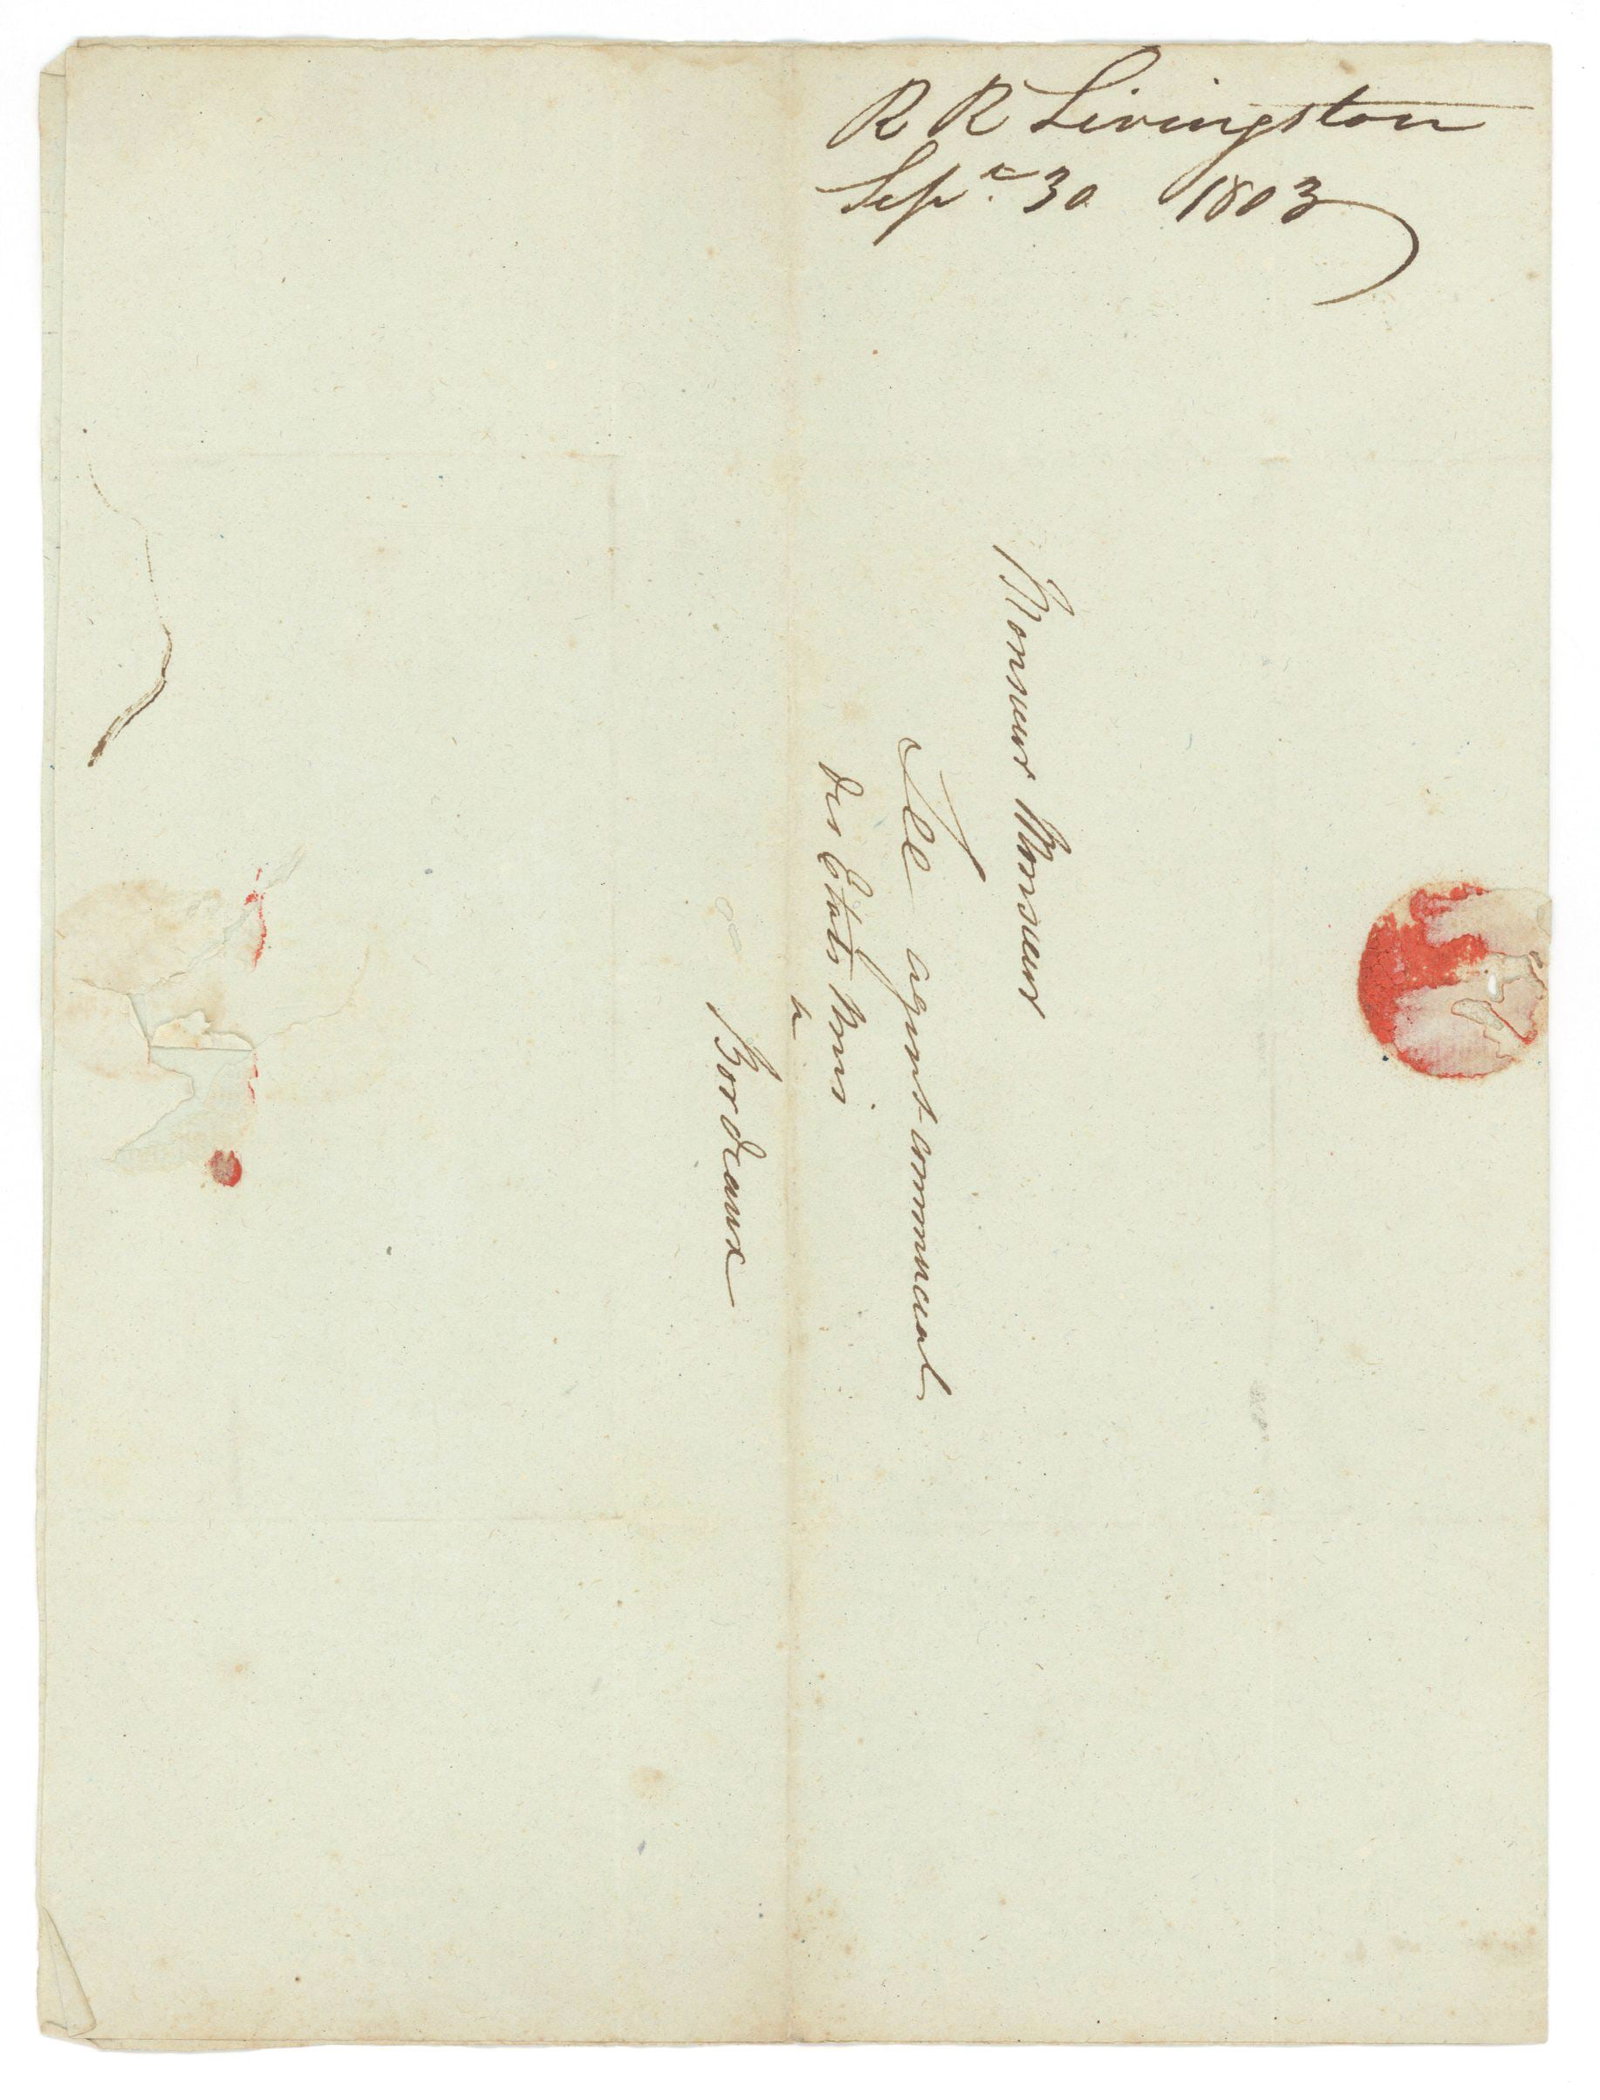 R R Livingston
Sepr. 30 1803
Monsieur Monsieur
Lee agent commercial
des Etats Unis
a
Bordeaux